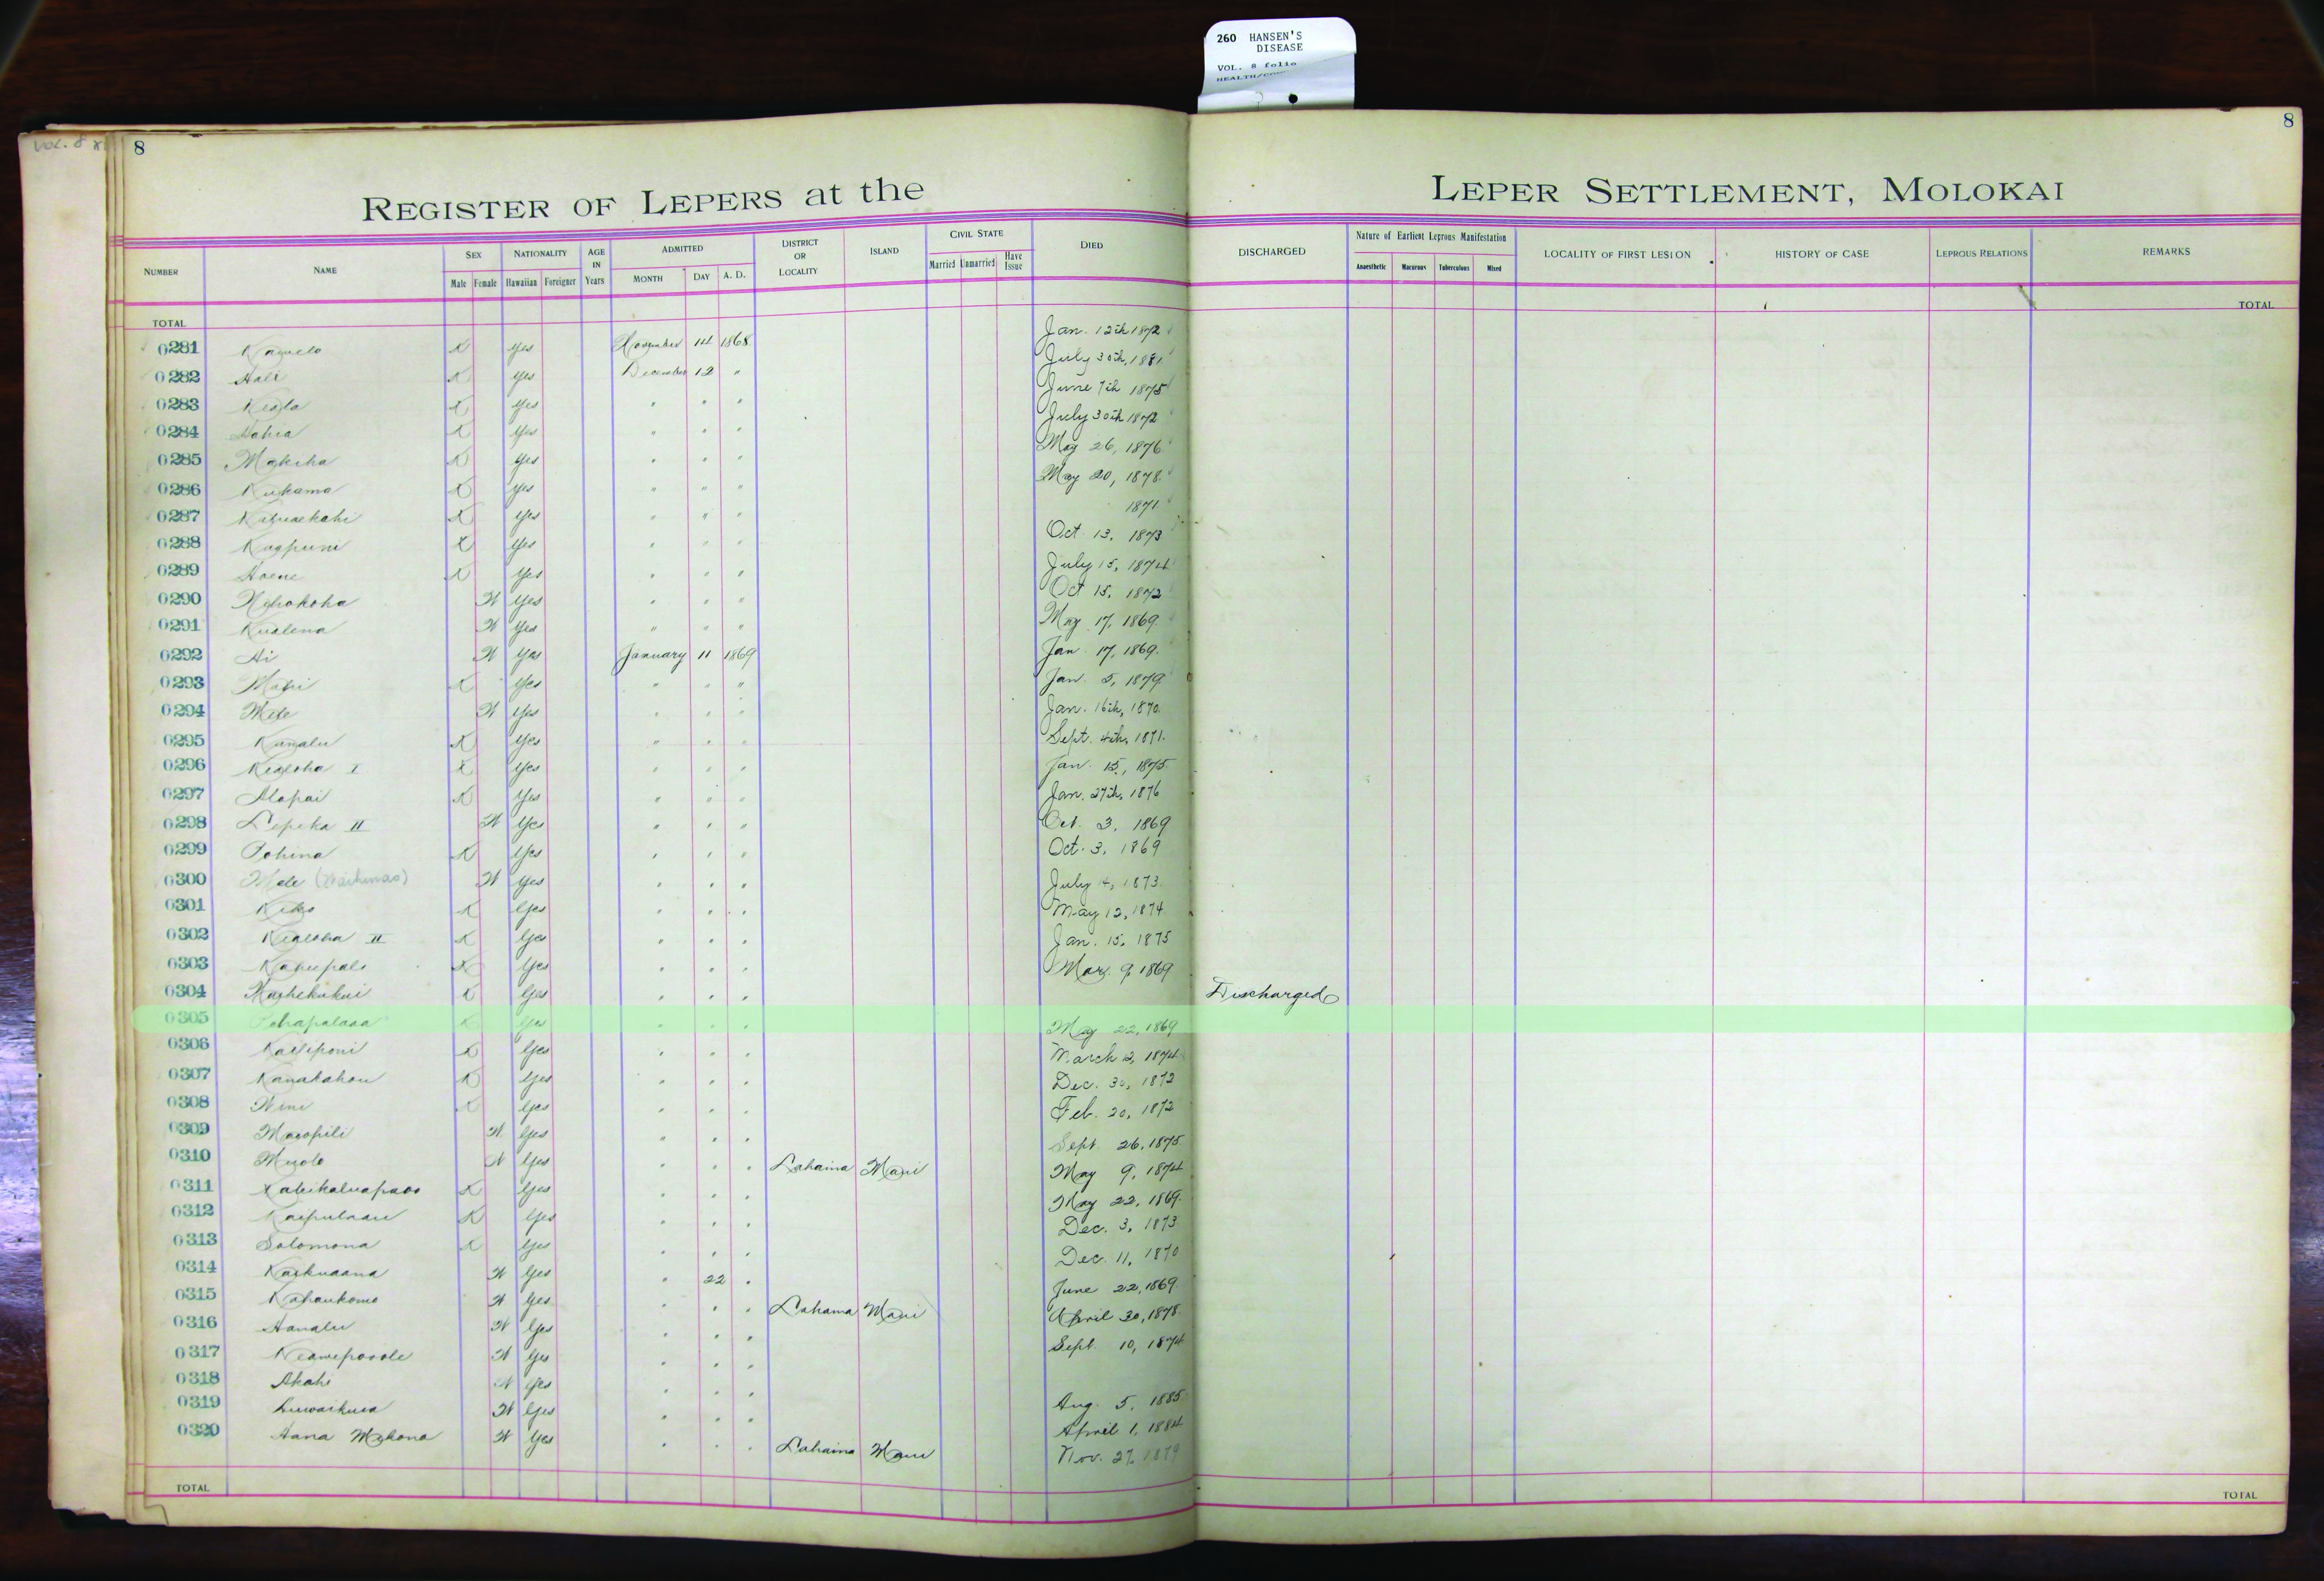 260 HANSEN'S
DISEASE
VOL. 8 folio
VOL. 8
8
8
REGISTER OF LEPERS at the LEPER SETTLEMENT, MOLOKAI
NUMBER NAME SEX Male Female NATIONALITY Hawaiian Foreigner AGE IN Years ADMITTED MONTH DAY A. D. DISTRICT OR LOCALITY ISLAND CIVIL STATE Married Unmarried Have Issue DIED DISCHARGED Nature of Earliest Leprous Manifestation Anaesthetic Macurous Tuberculous Mixed LOCALITY OF FIRST LESION HISTORY OF CASE LEPROUS RELATIONS REMARKS
TOTAL TOTAL
0281 K Yes November 14 1868 Jan. 12th 1872
0282 Hali K Yes December 12 " July 30th, 1881
0283 K Yes " " " June 7th 1875
0284 K Yes " " " July 30th 1872
0285 Makeha K Yes " " " May 26, 1876
0286 Kukama K Yes " " " May 20, 1878
0287 K Yes " " " 1871
0288 K Yes " " " Oct. 13, 1873
0289 Hoene K Yes " " " July 15, 1874
0290 W Yes " " " Oct 15, 1872
0291 Kualena W Yes " " " May 17, 1869
0292 W Yes January 11 1869 Jan 17, 1869
0293 K Yes " " " Jan 5, 1879
0294 W Yes " " " Jan. 16th, 1870
0295 K Yes " " " Sept. 4th, 1871
0296 Kealoha I K Yes " " " Jan. 15, 1875
0297 Alapai K Yes " " " Jan. 27th, 1876
0298 Lepeka II W Yes " " " Oct. 3, 1869
0299 Pohina K Yes " " " Oct. 3, 1869
0300 Mele W Yes " " " July 4, 1873
0301 K Yes " " " May 12, 1874
0302 Kealoha II K Yes " " " Jan. 15, 1875
0303 K Yes " " " Mar. 9, 1869
0304 K Yes " " " Discharged
0305 K Yes " " " May 22, 1869
0306 Kailiponi K Yes " " " March 12, 1874
0307 Kanakahou K Yes " " " Dec. 30, 1872
0308 Wini K Yes " " " Feb. 20, 1872
0309 W Yes " " " Sept. 26, 1875
0310 W Yes " " " Lahaina Maui May 9, 1874
0311 K Yes " " " May 22, 1869
0312 K Yes " " " Dec. 3, 1873
0313 Solomona K Yes " " " Dec. 11, 1870
0314 Kaikuaana W Yes " 22 " June 22, 1869
0315 W Yes " " " Lahaina Maui April 30, 1878
0316 W Yes " " " Sept. 10, 1874
0317 W Yes " " "
0318 Akahi W Yes " " " Aug. 5, 1885
0319 W Yes " " " April 1, 1884
0320 Hana W Yes " " " Lahaina Maui Nov. 27, 1879
TOTAL TOTAL